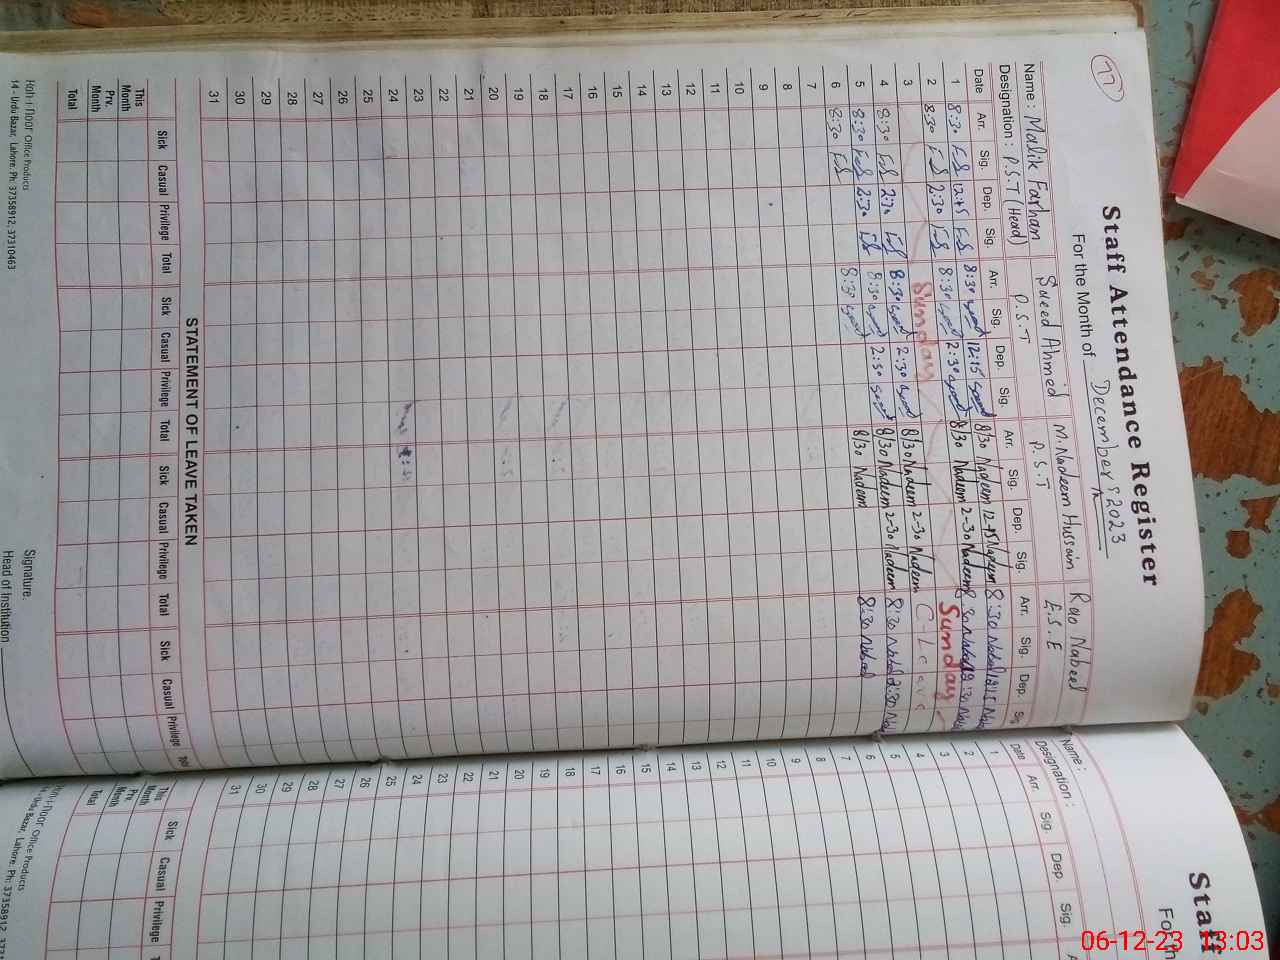 77
Staff Attendance Register
For the Month of December, 2023
Name : Malik Farhan Saeed Ahmed M. Nadeem Hussain Rao Nabeel
Designation : P.S.T (Head) P.S.T P.S.T E.S.E
Date Arr. Sig. Dep. Sig. Arr. Sig. Dep. Sig. Arr. Sig. Dep. Sig. Arr. Sig. Dep. Sig
1 8:30 FS 12:45 FS 8:30 Saeed 12:15 Saeed 8/30 Nadeem 12-15 Nadeem 8:30 Nabeel 12:15
2 8:30 FS 2:30 FS 8:30 Saeed 2:30 Saeed 8/30 Nadeem 2-30 Nadeem 8:30 Nabeel 2:30
3 Sunday Sunday
4 8:30 FS 2:30 FS 8:30 Saeed 2:30 Saeed 8/30 Nadeem 2-30 Nadeem C-Leave
5 8:30 FS 2:30 FS 8:30 Saeed 2:30 Saeed 8/30 Nadeem 2-30 Nadeem 8:30 Nabeel 2:30
6 8:30 FS 8:30 Saeed 8/30 Nadeem 8:30 Nabeel
7
8
9
10
11
12
13
14
15
16
17
18
19
20
21
22
23
24
25
26
27
28
29
30
31
STATEMENT OF LEAVE TAKEN
Sick Casual Privilege Total Sick Casual Privilege Total Sick Casual Privilege Total Sick Casual Privilege
This Month
Prv. Month
Total
Signature.
Head of Institution
Office Products
14 - Urdu Bazar, Lahore. Ph: 37358912, 37310463
Staff
For th
Name :
Designation :
Date Arr. Sig. Dep. Sig.
1
2
3
4
5
6
7
8
9
10
11
12
13
14
15
16
17
18
19
20
21
22
23
24
25
26
27
28
29
30
31
Sick Casual Privilege
This Month
Prv. Month
Total
Office Products
Urdu Bazar, Lahore. Ph: 37358912
06-12-23 13:03